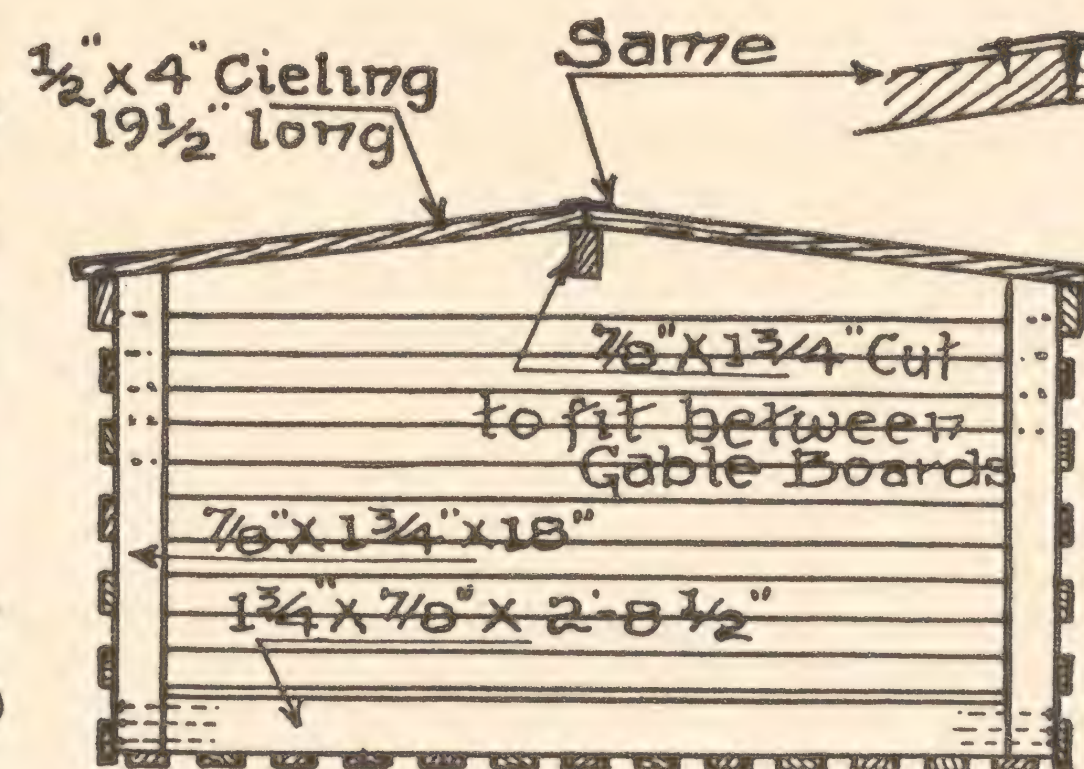 ½" x 4" Cieling
19½" long
Same
⅞" X 1¾" Cut
to fit between
Gable Boards
⅞" X 1¾" X 18"
1¾" X ⅞" X 2'-8½"